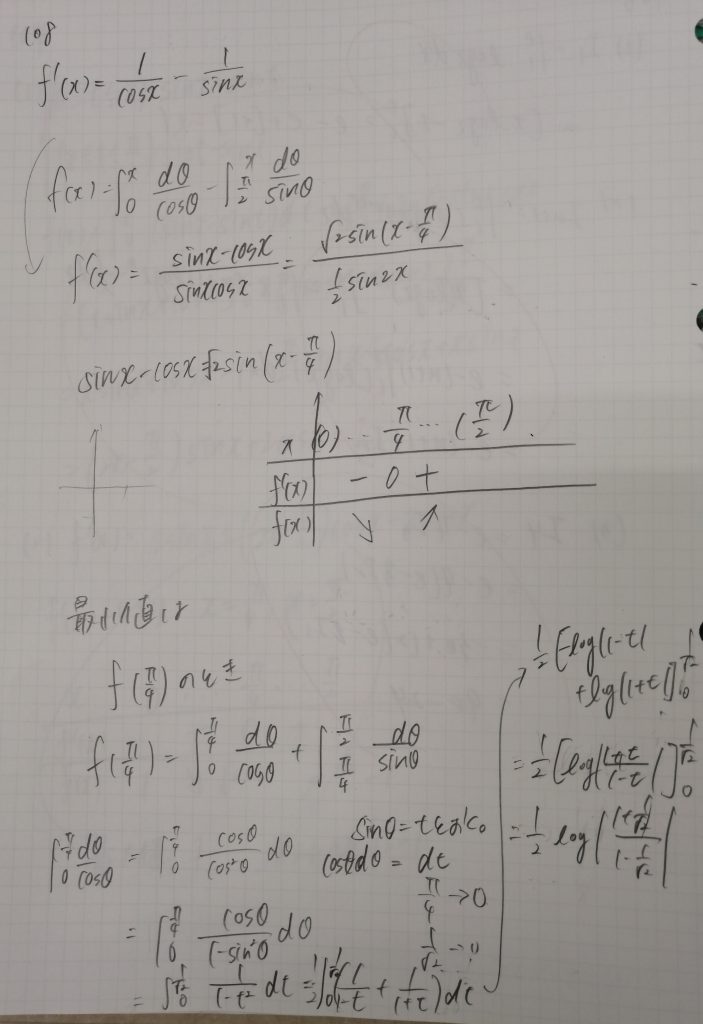 108
f'(x) = 1/cosx - 1/sinx
f(x) = ∫_0^x dθ/cosθ - ∫_{π/2}^x dθ/sinθ
f'(x) = (sinx-cosx)/(sinxcosx) = √2sin(x-π/4)/(1/2 sin2x)
sinx-cosx=√2sin(x-π/4)
x (0) ... π/4 ... (π/2).
f'(x) - 0 +
f(x) ↘ ↗
最小値は
f(π/4)のとき
f(π/4) = ∫_0^{π/4} dθ/cosθ + ∫_{π/4}^{π/2} dθ/sinθ
∫_0^{π/4} dθ/cosθ = ∫_0^{π/4} cosθ/cos²θ dθ
= ∫_0^{π/4} cosθ/(1-sin²θ) dθ
= ∫_0^{1/√2} 1/(1-t²) dt = 1/2 ∫_0^{1/√2} (1/(1-t) + 1/(1+t)) dt
sinθ=tとおくo
cosθdθ = dt
π/4 → 0
1/√2 → 0
1/2 [-log|1-t|
+log|1+t|]_0^{1/√2}
= 1/2 [log|(1+t)/(1-t)|]_0^{1/√2}
= 1/2 log|(1+1/√2)/(1-1/√2)|